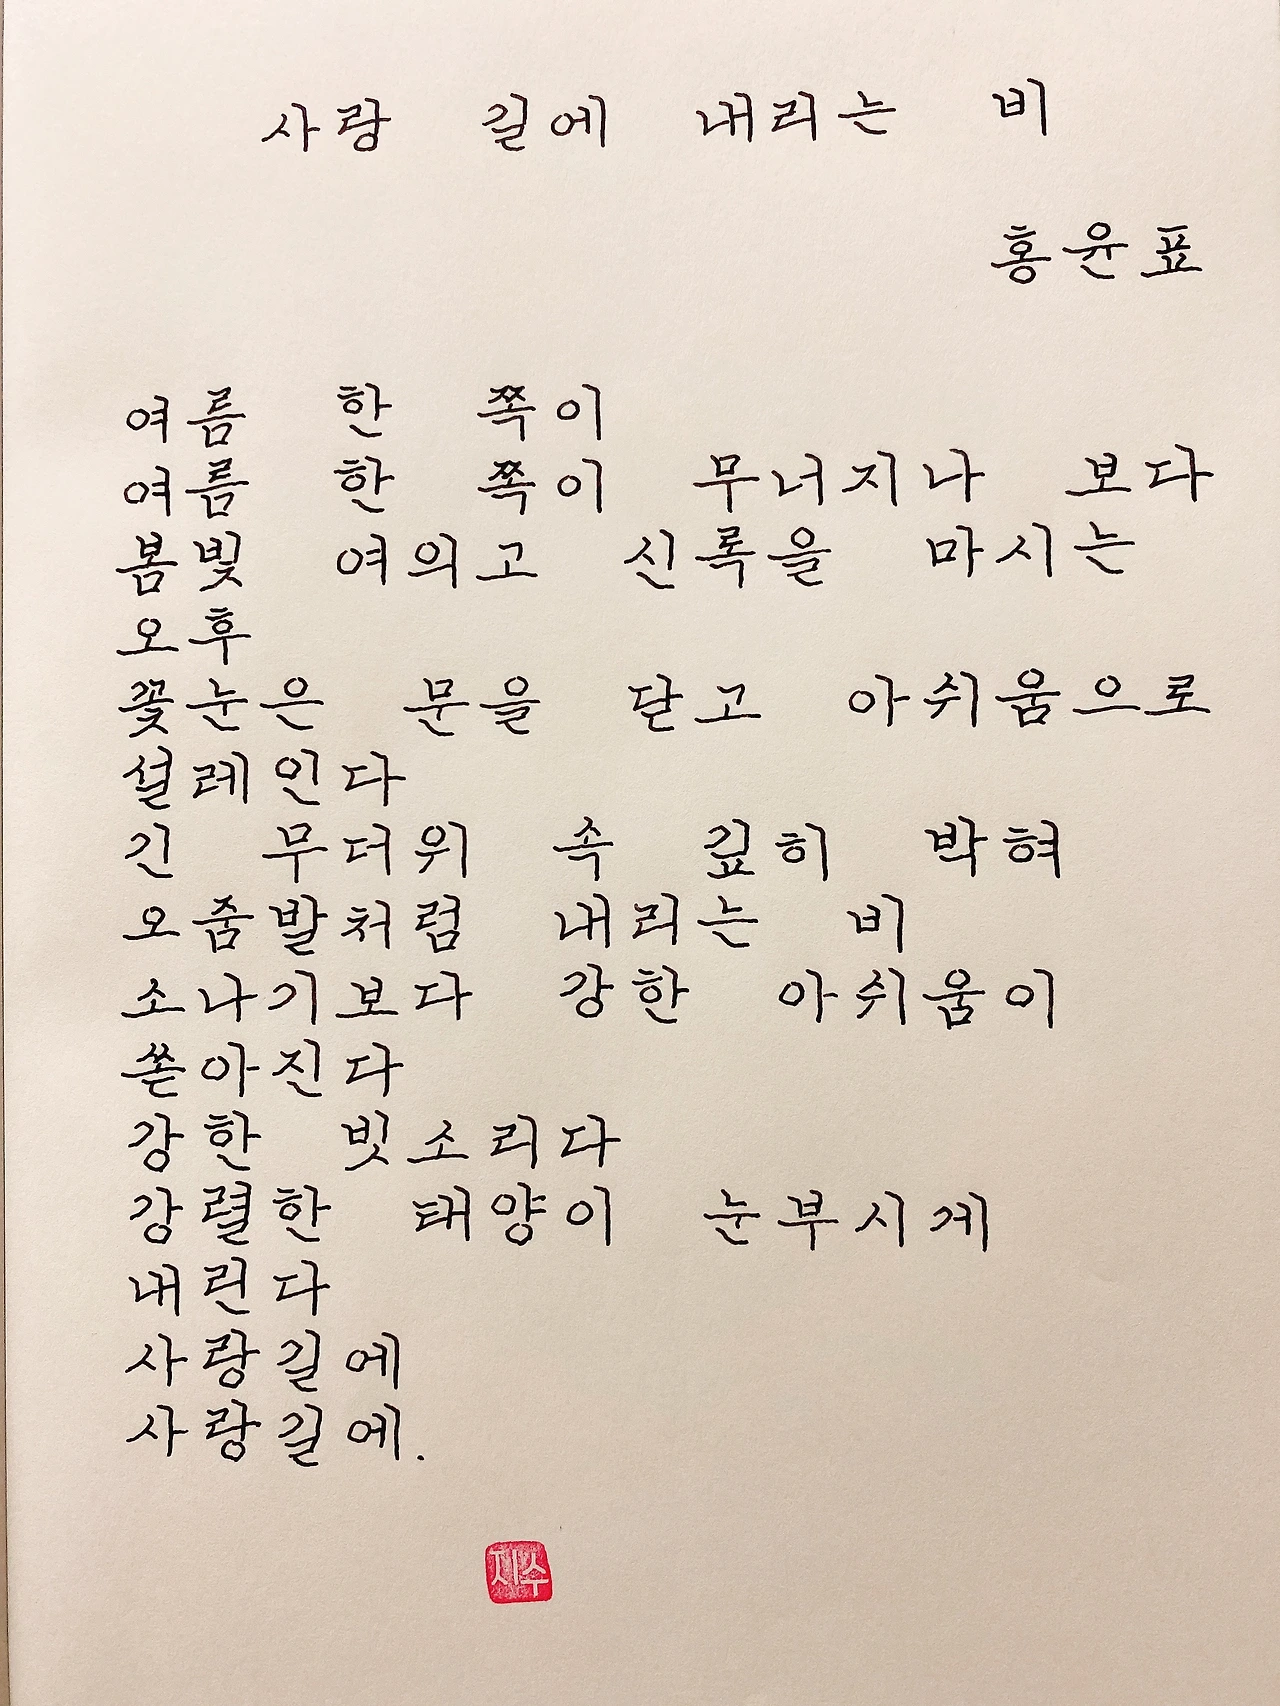 사랑 길에 내리는 비
홍윤표
여름 한 쪽이
여름 한 쪽이 무너지나 보다
봄빛 여의고 신록을 마시는
오후
꽃눈은 문을 닫고 아쉬움으로
설레인다
긴 무더위 속 깊히 박혀
오줌발처럼 내리는 비
소나기보다 강한 아쉬움이
쏟아진다
강한 빗소리다
강렬한 태양이 눈부시게
내린다
사랑길에
사랑길에.
지수